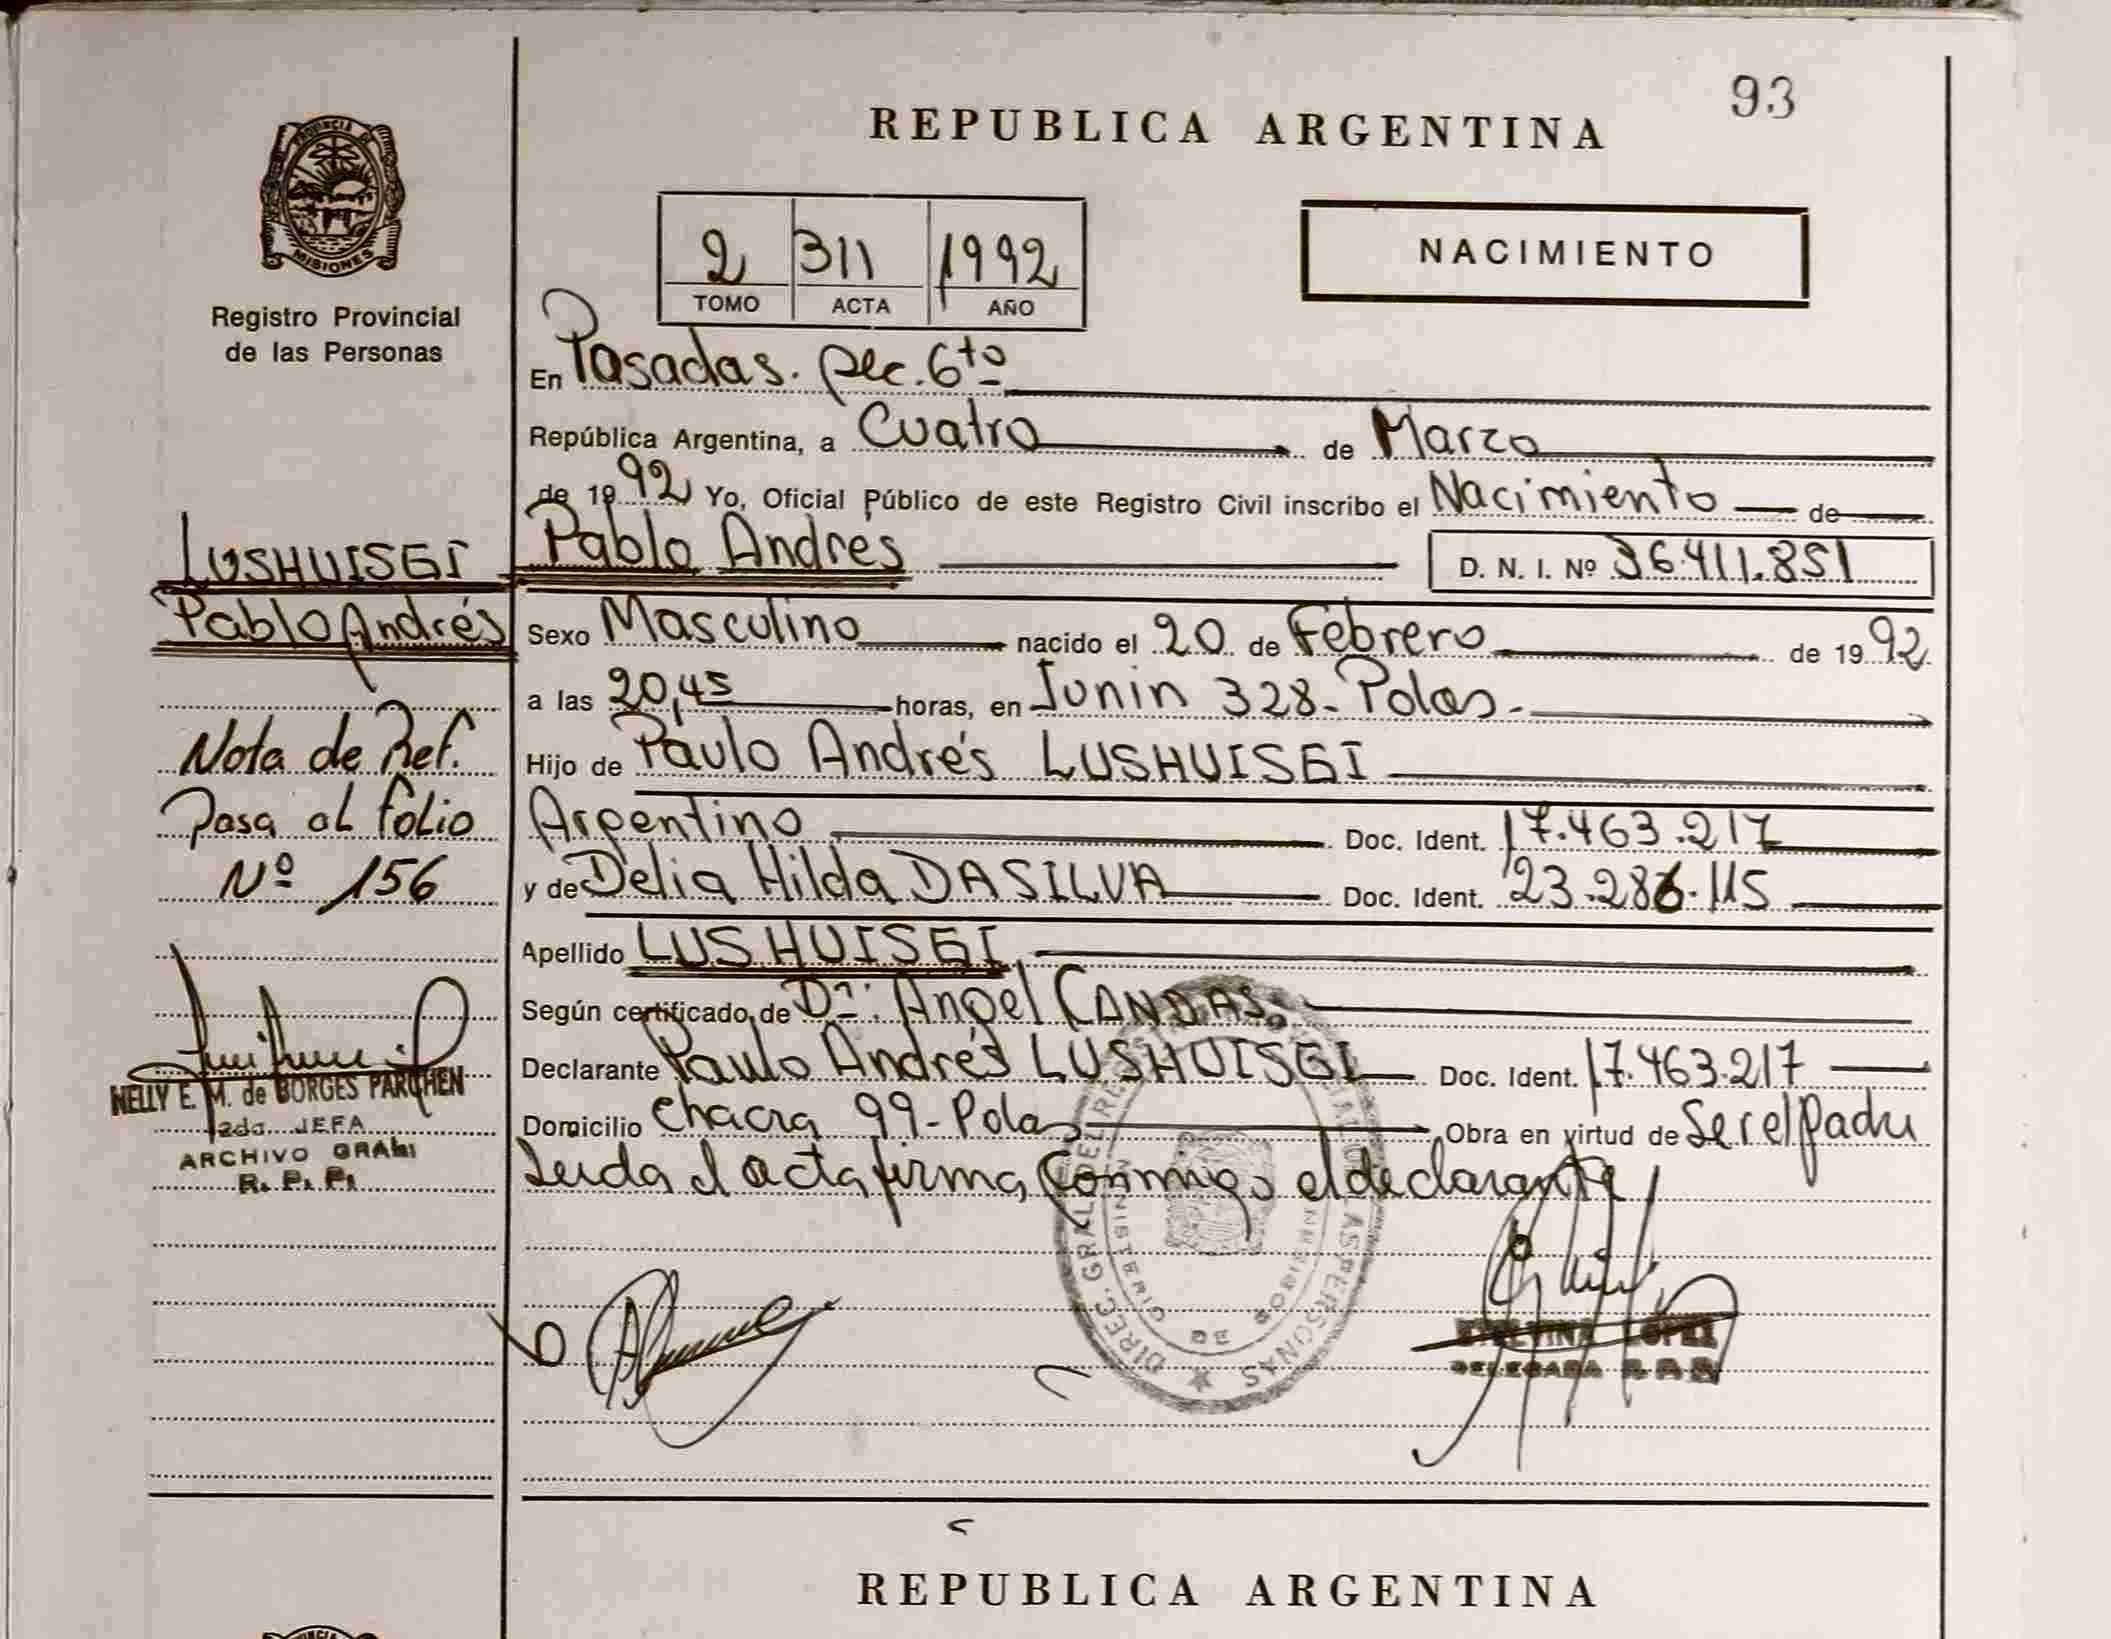 93
REPUBLICA ARGENTINA
PROVINCIA DE
MISIONES
Registro Provincial
de las Personas
2 311 1992
TOMO ACTA AÑO
NACIMIENTO
En Posadas. Sec. 6to
República Argentina, a Cuatro de Marzo
de 1992 Yo, Oficial Público de este Registro Civil inscribo el Nacimiento de
Pablo Andres D. N. I. Nº 36.411.851
Sexo Masculino nacido el 20 de Febrero de 1992
a las 20,45 horas, en Junin 328- Pdas.-
Hijo de Paulo Andrés LUSHUISGI
Argentino Doc. Ident. 17.463.217
y de Delia Hilda DASILVA Doc. Ident. 23.286.115
Apellido LUSHUISGI
Según certificado de Dr: Angel CANDAS.
Declarante Paulo Andrés LUSHUISGI Doc. Ident. 17.463.217
Domicilio Chacra 99-Pdas Obra en virtud de Ser el padre
Leida el acta firma, conmigo el declarante
LUSHUISGI
Pablo Andrés
Nota de Ref.
Pasa al folio
Nº 156
NELLY E. M. de BORGES PARCHEN
2da. JEFA
ARCHIVO GRAL
R. P. P.
DIREC. GRAL. DEL REG. LAS PERSONAS
ETELVINA LOPEZ
DELEGADA
REPUBLICA ARGENTINA